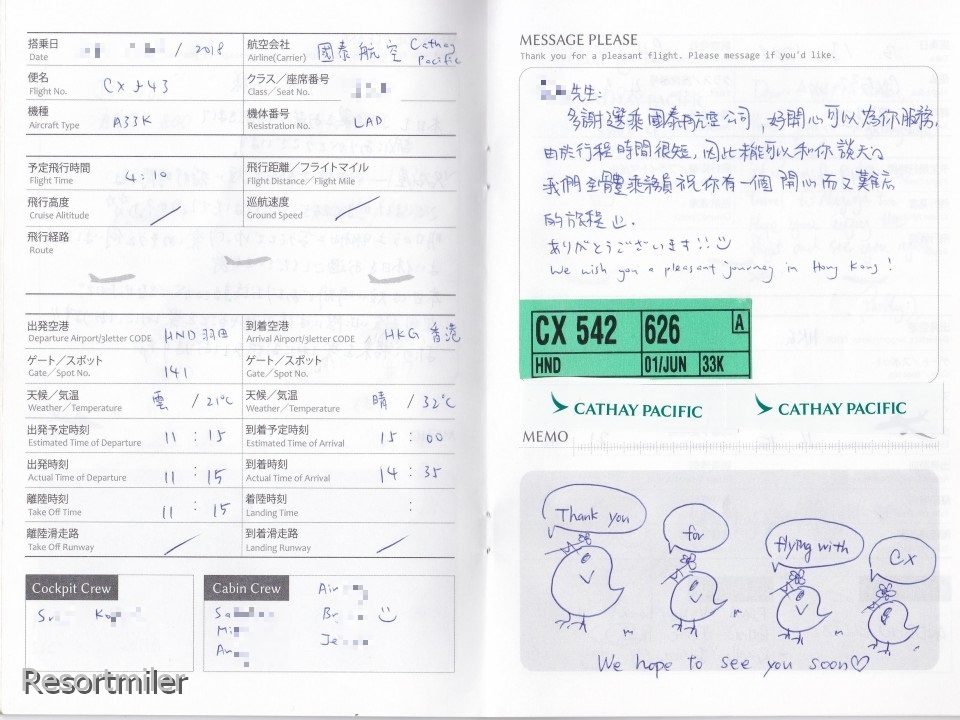 搭乗日
Date
/ 2018
航空会社
Airline(Carrier)
國泰航空 Cathay
Pacific
便名
Flight No.
CX 543
クラス／座席番号
Class／Seat No.
機種
Aircraft Type
A33K
機体番号
Resistration No.
LAD
予定飛行時間
Flight Time
4:10
飛行距離／フライトマイル
Flight Distance／Flight Mile
飛行高度
Cruise Alititude
巡航速度
Ground Speed
飛行経路
Route
出発空港
Departure Airport/3letter CODE
HND 羽田
到着空港
Arrival Airport/3letter CODE
HKG 香港
ゲート／スポット
Gate／Spot No.
141
ゲート／スポット
Gate／Spot No.
天候／気温
Weather／Temperature
雲 / 21°C
天候／気温
Weather／Temperature
晴 / 32°C
出発予定時刻
Estimated Time of Departure
11 : 15
到着予定時刻
Estimated Time of Arrival
15 : 00
出発時刻
Actual Time of Departure
11 : 15
到着時刻
Actual Time of Arrival
14 : 35
離陸時刻
Take Off Time
11 : 15
着陸時刻
Landing Time
:
離陸滑走路
Take Off Runway
到着滑走路
Landing Runway
Cockpit Crew
Cabin Crew
Resortmiler
MESSAGE PLEASE
Thank you for a pleasant flight. Please message if you'd like.
先生:
多謝選乘國泰航空公司，好開心可以為你服務.
由於行程時間很短，因此未能可以和你談天。
我們全體乘務員祝你有一個開心而又難忘
的旅程
ありがとうございます!!
We wish you a pleasant journey in Hong Kong!
CX 542 626 A
HND 01/JUN 33K
CATHAY PACIFIC CATHAY PACIFIC
MEMO
Thank you
for
flying with
CX
We hope to see you soon♡